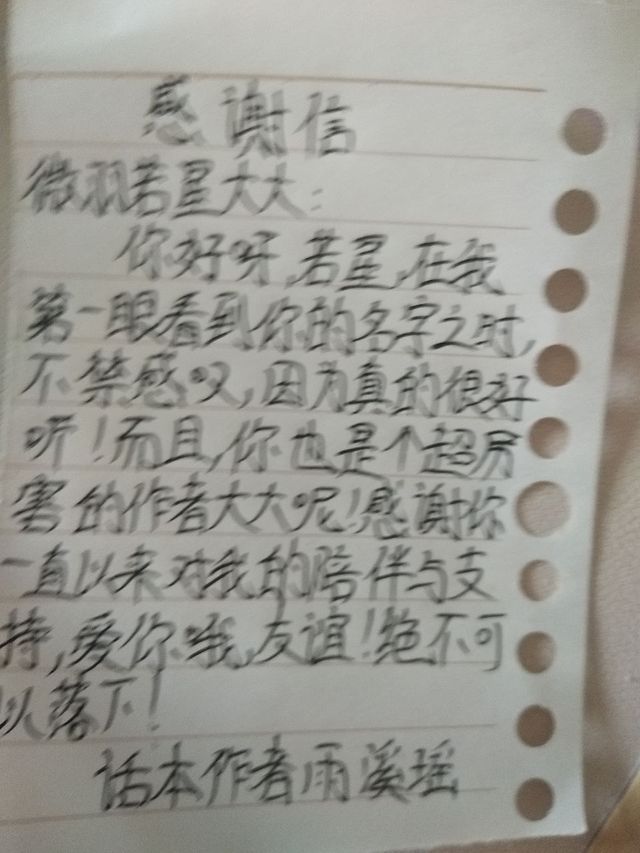 感谢信
微羽若星大大:
你好呀,若星,在我
第一眼看到你的名字之时,
不禁感叹,因为真的很好
听!而且,你也是个超厉
害的作者大大呢!感谢你
一直以来对我的陪伴与支
持,爱你哦,友谊!绝不可
以落下!
话本作者雨溪瑶